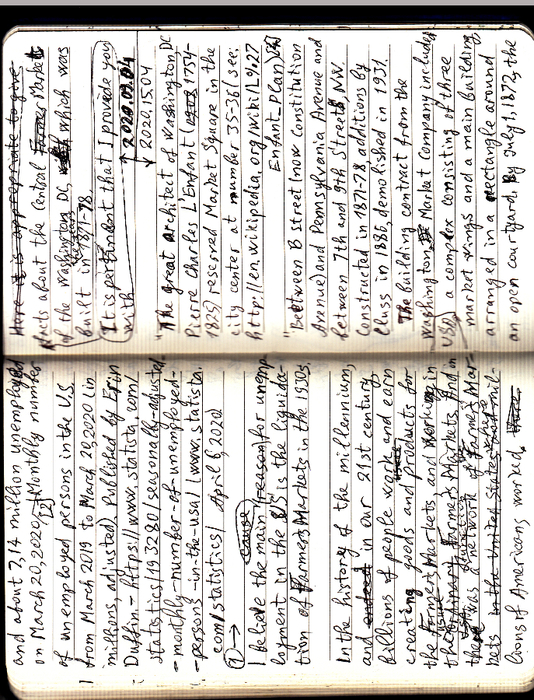 and about 7,14 million unemployed
on March 20, 2020, [2] Monthly number
of unemployed persons in the U.S.
from March 2019 to March 2020 (in
millions, adjusted). Published by Erin
Duffin - https://www.statista.com/
statistics/193280/seasonally-adjusted
-monthly-number-of-unemployed-
-persons-in-the-usa/ (www.statista.
com/statistics/ April 6, 2020)
→ cause
I believe the main (reason) for unemp
loyment in the U.S is the liquida-
tion of Farmers Markets in the 1930s.
In the history of the millennium,
and in our 21st century
Billions of people work and earn
creating goods and products for
the Farmers Markets and Working in
Farmers Markets. And in
there was a network of Farmers Mar-
kets in the United States where mil-
lions of Americans worked.
Here it is appropriate to give
facts about the Central Market
of the Washington DC, which was
built in 1871-78.
It is pertinent that I provide you
with 2020.09.04
2020.15.04
"The great architect of Washington, DC
Pierre Charles L'Enfant (1754-
1825) reserved Market Square in the
city center at number 35-36 see:
http://en.wikipedia.org/wiki/L%27
Enfant_Plan)
"Between B street (now Constitution
Avenue) and Pennsylvania Avenue and
between 7th and 9th Streets N.W.
Constructed in 1871-78, additions by
Cluss in 1886, demolished in 1931.
The building contract from the
Washington Market Company includes
a complex consisting of three
market wings and a main building
arranged in a rectangle around
an open courtyard. By July 1, 1872, the